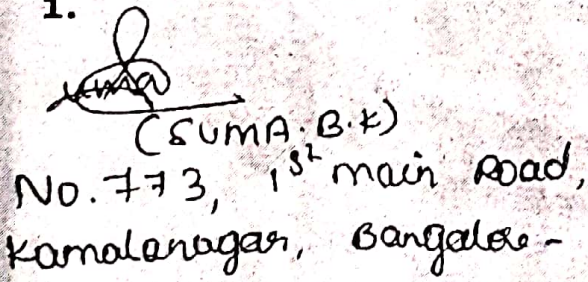 1.
Suma
(SUMA.B.K)
No.773, 1st main Road,
Kamalanagar, Bangalore-